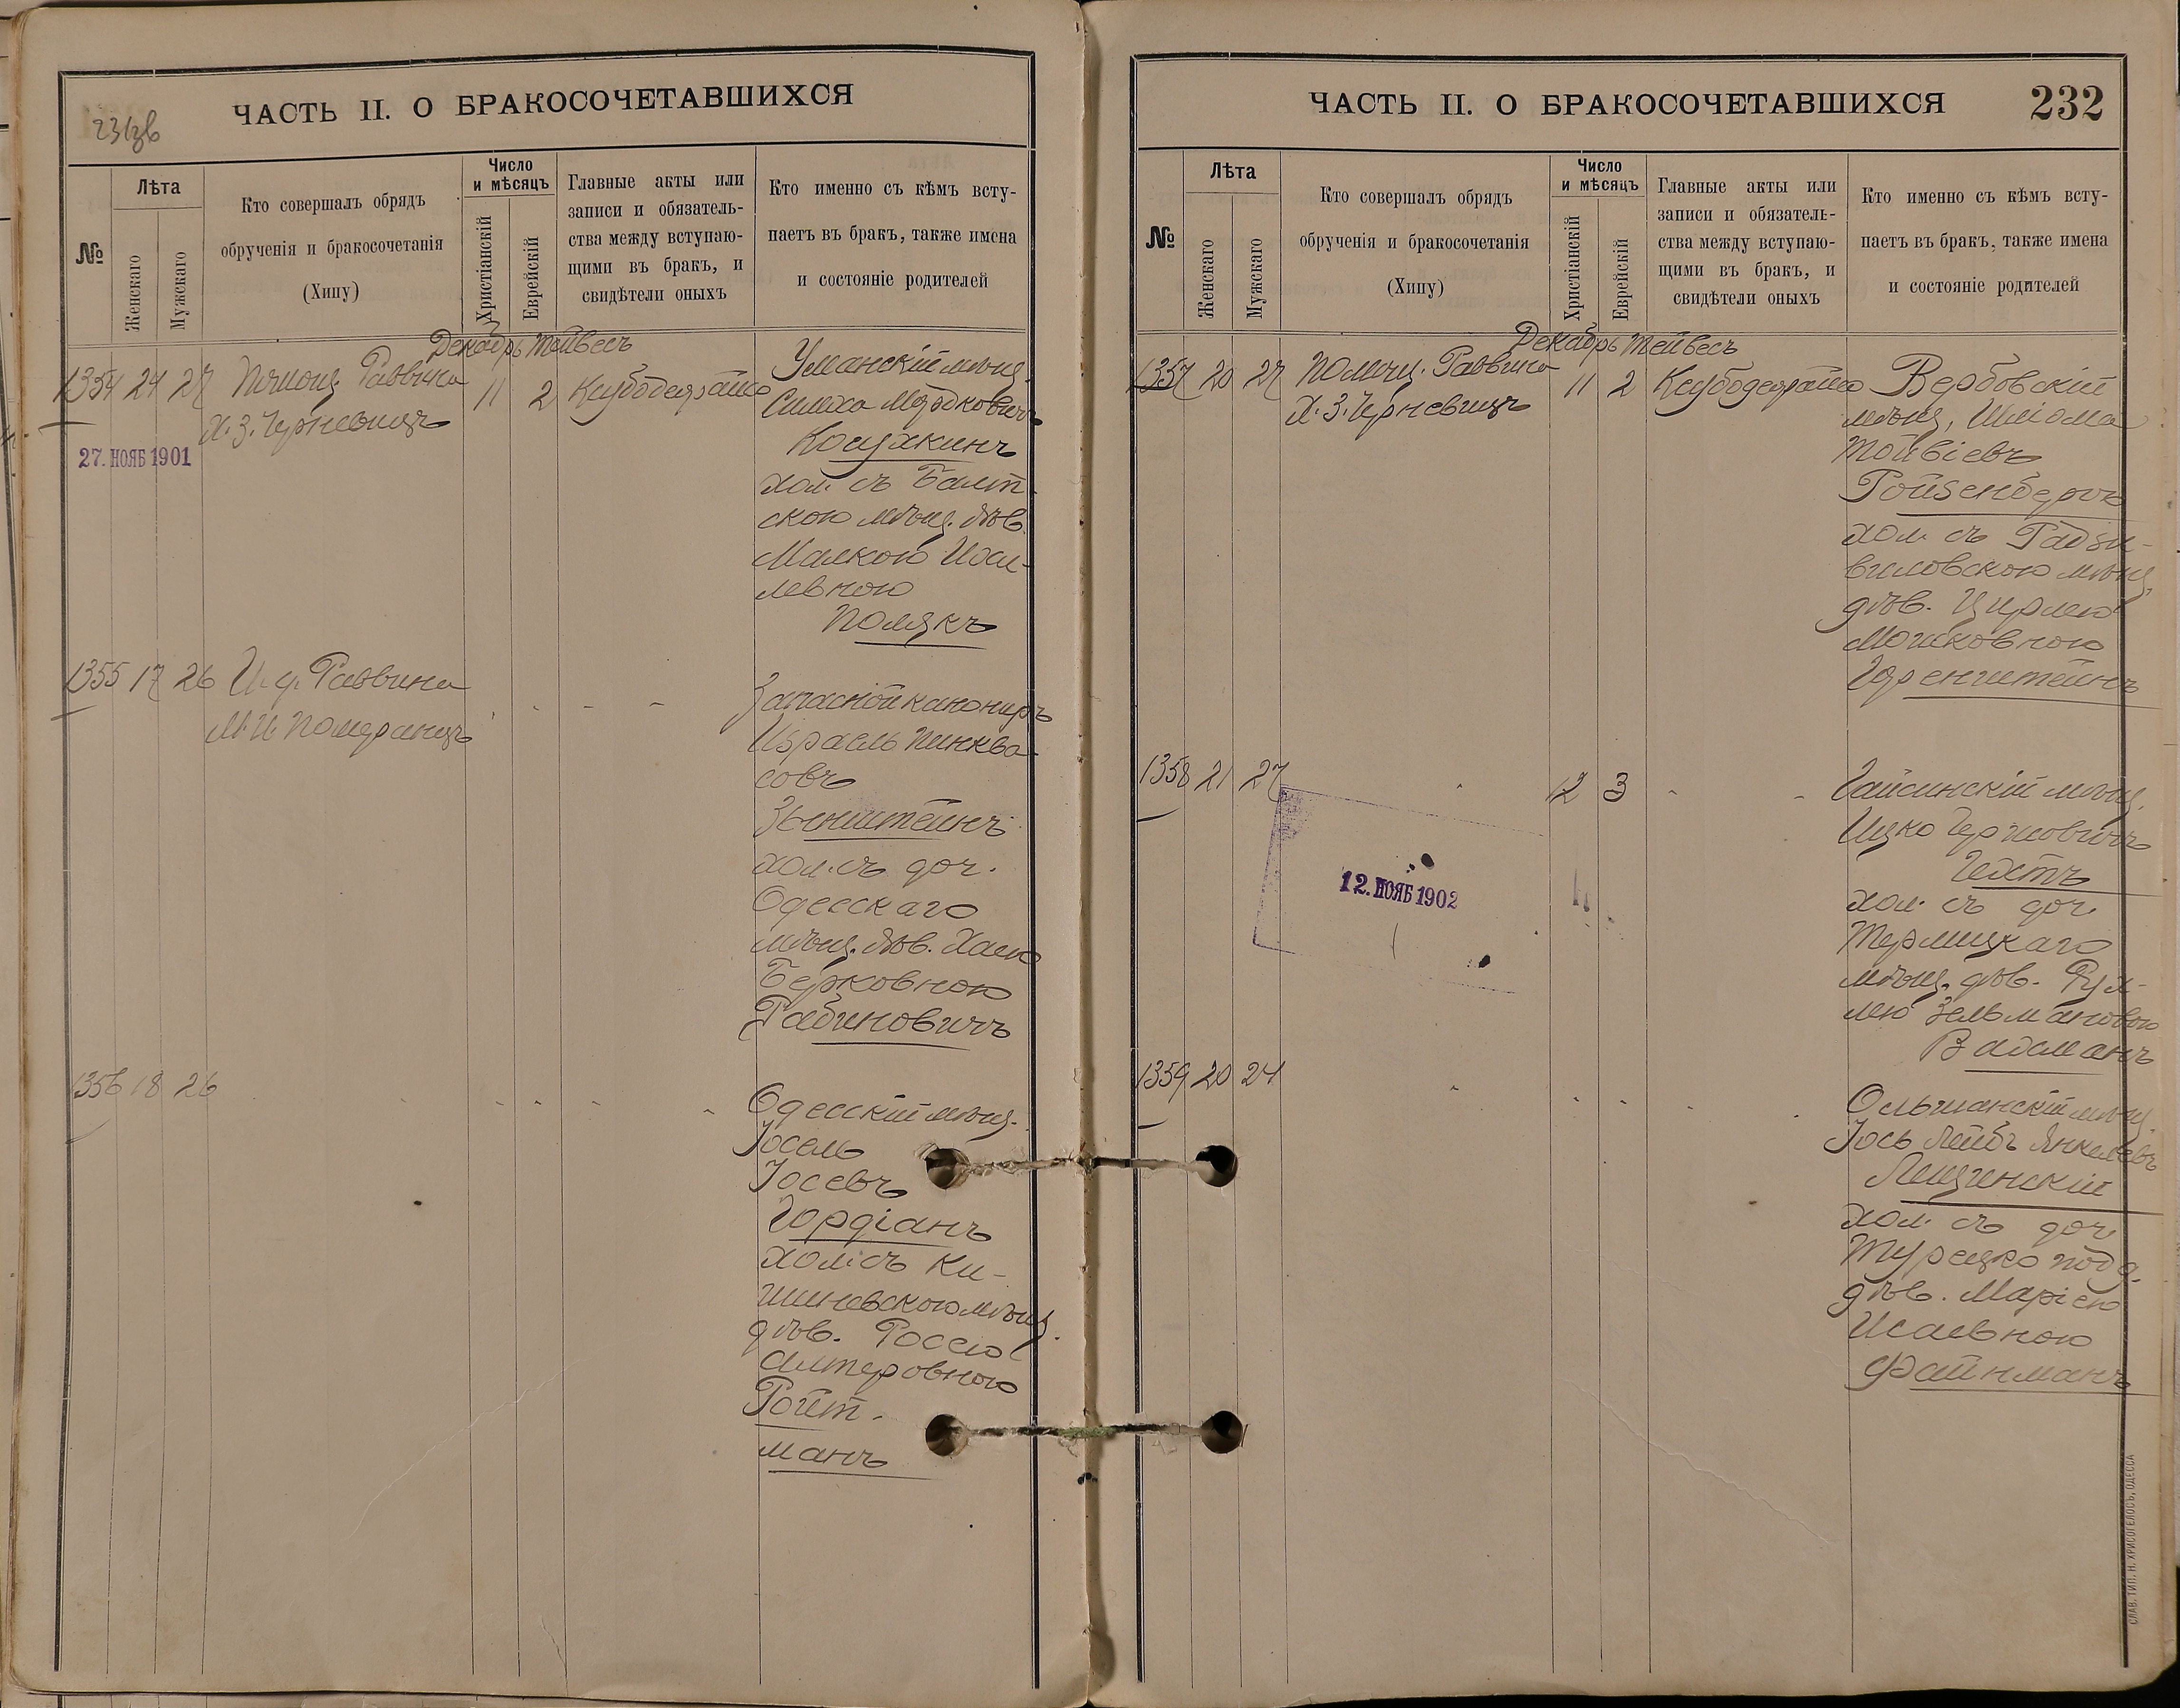 231об
ЧАСТЬ II. О БРАКОСОЧЕТАВШИХСЯ
№
Лѣта
Женскаго
Мужскаго
Кто совершалъ обрядъ
обрученія и бракосочетанія
(Хипу)
Число
и мѣсяцъ
Христіанскій
Еврейскій
Главные акты или
записи и обязатель-
ства между вступаю-
щими въ бракъ, и
свидѣтели оныхъ
Кто именно съ кѣмъ всту-
паетъ въ бракъ, также имена
и состояніе родителей
Декабрь Тейвесъ
1354 24 27 Помощ. Раввина 11 2
Х. З. Черневицъ
27. НОЯБ 1901
Уманскій мѣщ.
Симха Мордковичъ
хол. съ Балт-
скою мѣщ. дѣв.
Малкою Иои-
левною
Полякъ
1355 17 26 И. д. Раввина
М. И. Померанцъ
Запасной канониръ
Израиль Пинква-
совъ
хол. съ доч.
Одесскаго
мѣщ. дѣв. Хаею
Берковною
Рабиновичъ
1356 18 26
Одесскій мѣщ.
Іосель
Іосевъ
Гордіанъ
хол. съ Ки-
шиневскою мѣщ.
дѣв. Россею
Алтеровною
Ройт-
манъ
ЧАСТЬ II. О БРАКОСОЧЕТАВШИХСЯ
232
№
Лѣта
Женскаго
Мужскаго
Кто совершалъ обрядъ
обрученія и бракосочетанія
(Хипу)
Число
и мѣсяцъ
Христіанскій
Еврейскій
Главные акты или
записи и обязатель-
ства между вступаю-
щими въ бракъ, и
свидѣтели оныхъ
Кто именно съ кѣмъ всту-
паетъ въ бракъ, также имена
и состояніе родителей
Декабрь Тейвесъ
1357 20 27 Помощ. Раввина 11 2
Х. З. Черневицъ
Вербовскій
мѣщ. Шліома
Тойвіевъ
Ройзенбергъ
хол. съ Радзи-
виловскою мѣщ.
дѣв. Цирлею
Мошковною
1358 21 27 12 3
12. НОЯБ 1902
Гайсинскій мѣщ.
Ицко Гершовичъ
Гехтъ
хол. съ доч.
Терлицкаго
мѣщ. дѣв. Рух-
лею Зельмановою
1359 20 24
Ольшанскій мѣщ.
Іось Лейбъ Янкелевъ
Лещинскій
хол. съ доч.
Турецко подд.
дѣв. Маріею
Исаевною
Файнманъ
СЛАВ. ТИП. Н. ХРИСОГЕЛОСЪ, ОДЕССА